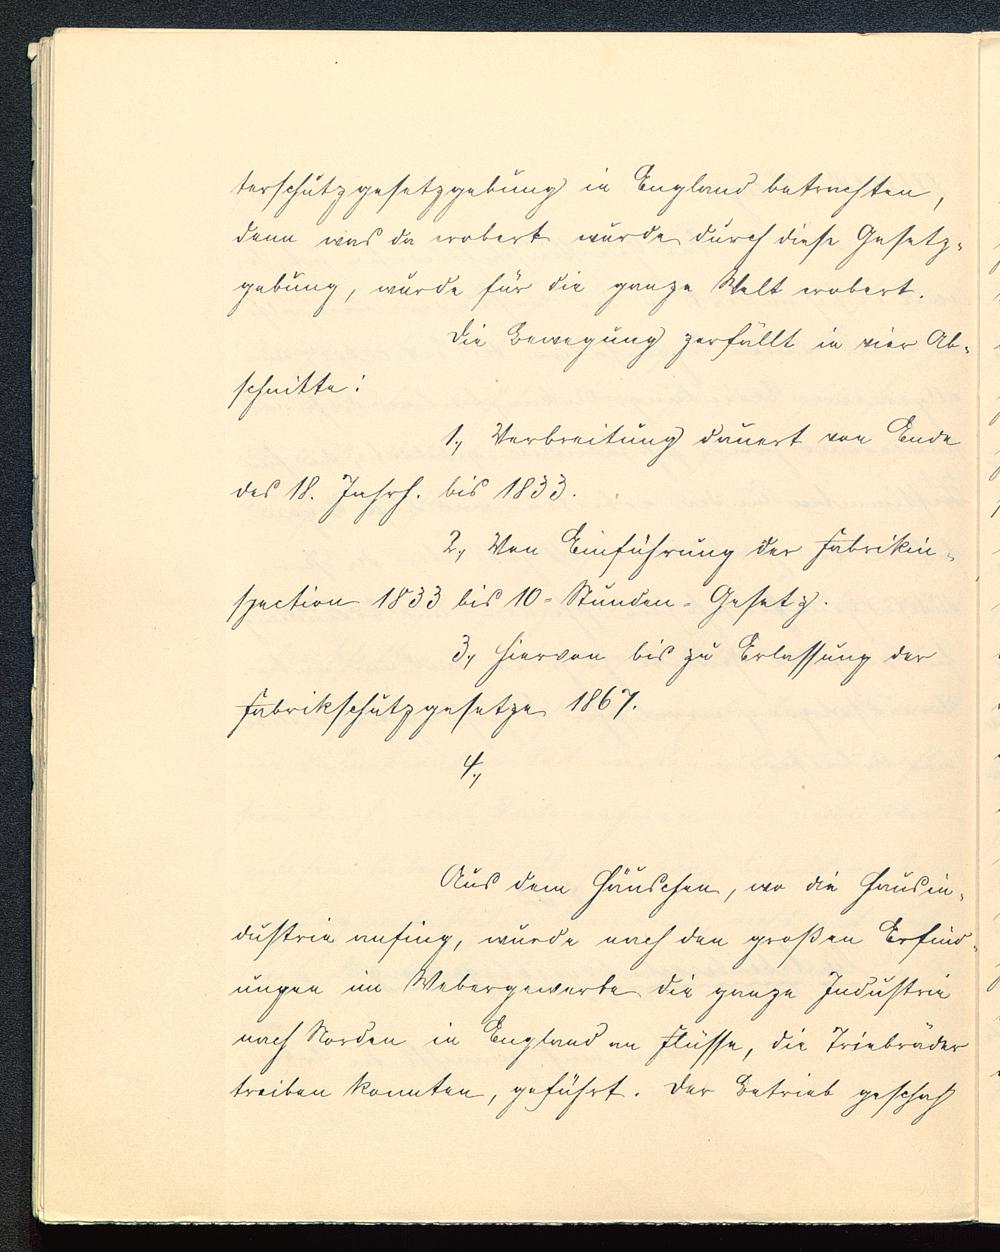 terschutzgesetzgebung in England betrachten,
denn was da erobert wurde durch diese Gesetz-
gebung, wurde für die ganze Welt erobert.
Die Bewegung zerfällt in vier Ab-
schnitte:
1., Verbreitung dauert von Ende
des 18. Jahrh. bis 1833.
2., Von Einführung der Fabrikin-
spection 1833 bis 10-Stunden-Gesetz.
3., Hiervon bis zu Erlassung der
Fabrikschutzgesetze 1867.
4.,
Aus dem Häuschen, wo die Hausin-
dustrie anfing, wurde nach den großen Erfind-
ungen im Webergewerbe die ganze Industrie
nach Norden in England an Flüsse, die Triebräder
treiben konnten, geführt. Der Betrieb geschah